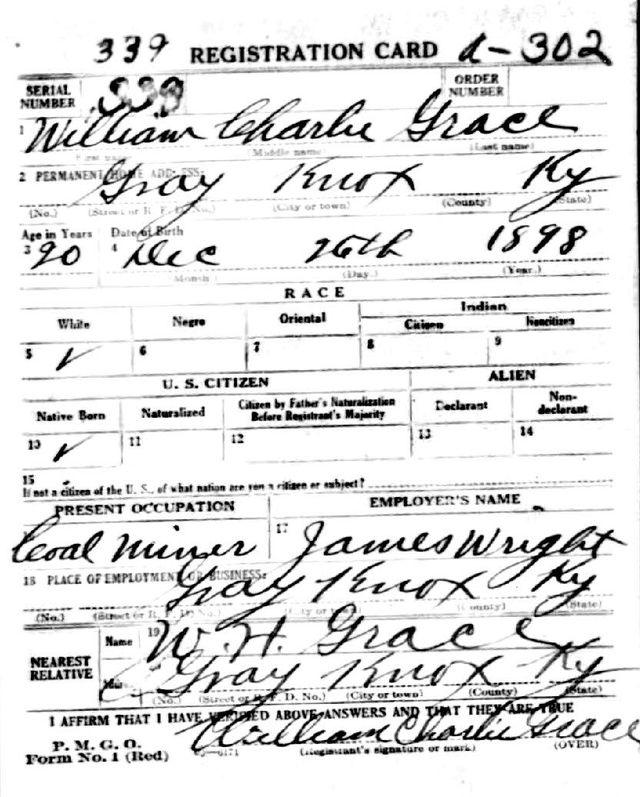 339 REGISTRATION CARD A-302
SERIAL NUMBER 339 ORDER NUMBER
1 William Charlie Grace
(First name) (Middle name) (Last name)
2 PERMANENT HOME ADDRESS:
Gray Knox Ky
(No.) (Street or R. F. D. No.) (City or town) (County) (State)
Age in Years Date of Birth
3 20 4 Dec 26th 1898
(Month) (Day.) (Year.)
RACE
White Negro Oriental Indian
Citizen Noncitizen
5 ✓ 6 7 8 9
U. S. CITIZEN ALIEN
Native Born Naturalized Citizen by Father's Naturalization Before Registrant's Majority Declarant Non-declarant
10 ✓ 11 12 13 14
15
If not a citizen of the U. S., of what nation are you a citizen or subject?
PRESENT OCCUPATION EMPLOYER'S NAME
Coal Miner 17 James Wright
18 PLACE OF EMPLOYMENT OR BUSINESS:
Gray Knox Ky
(No.) (Street or R. F. D. No.) (City or town) (County) (State)
NEAREST RELATIVE Name 19 W. H. Grace
Gray Knox Ky
(No.) (Street or R. F. D. No.) (City or town) (County) (State)
I AFFIRM THAT I HAVE VERIFIED ABOVE ANSWERS AND THAT THEY ARE TRUE
P. M. G. O.
Form No. 1 (Red) William Charlie Grace
(Registrant's signature or mark) (OVER)